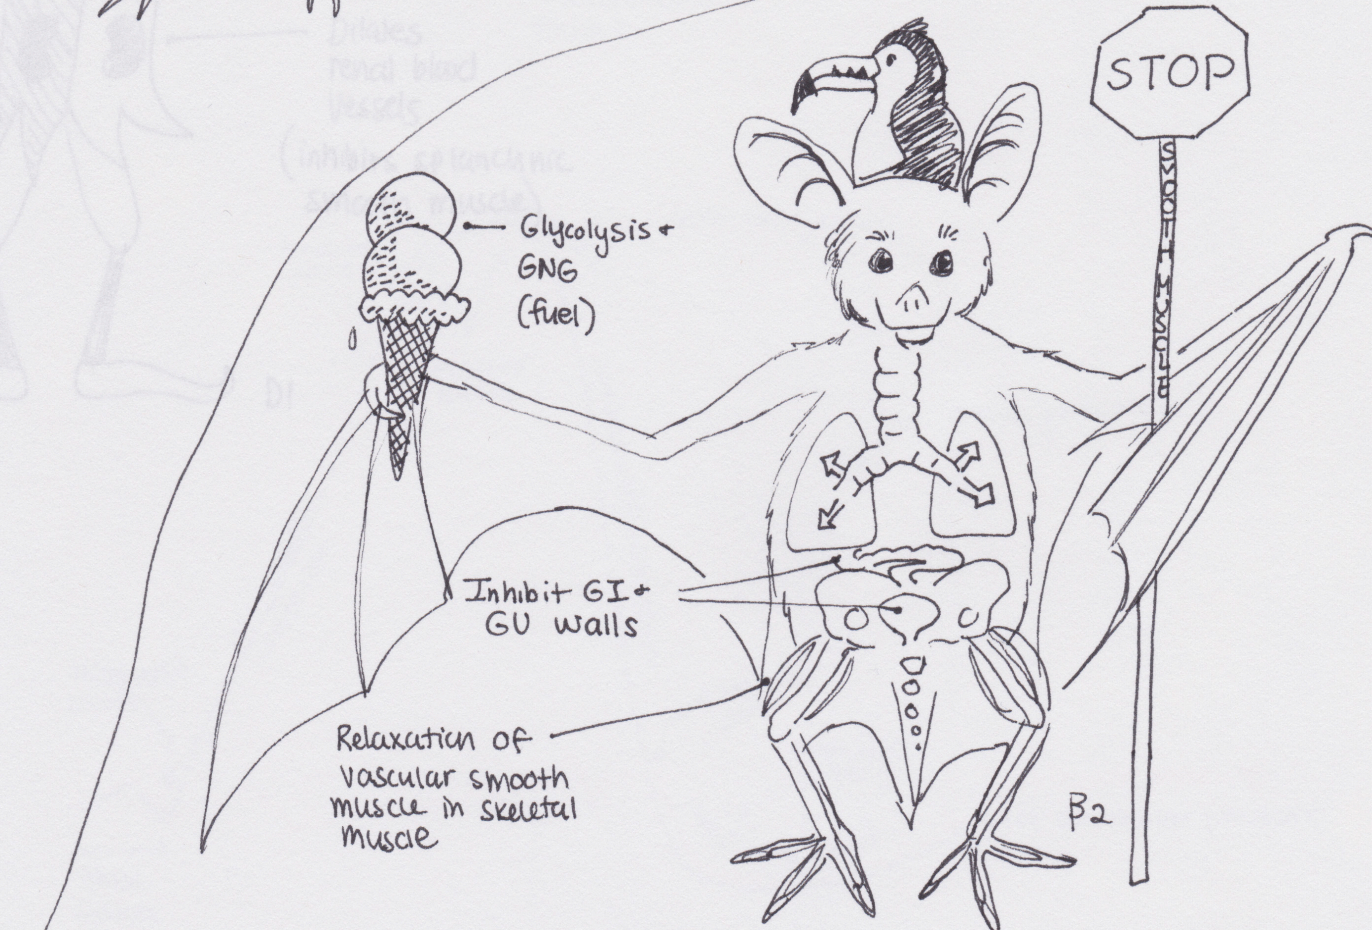 Dilates
renal blood
vessels
(inhibits splanchnic
smooth muscle)
D1
STOP
SMOOTH MUSCLE
Glycolysis +
GNG
(fuel)
Inhibit GI +
GU walls
Relaxation of
vascular smooth
muscle in skeletal
muscle
β2